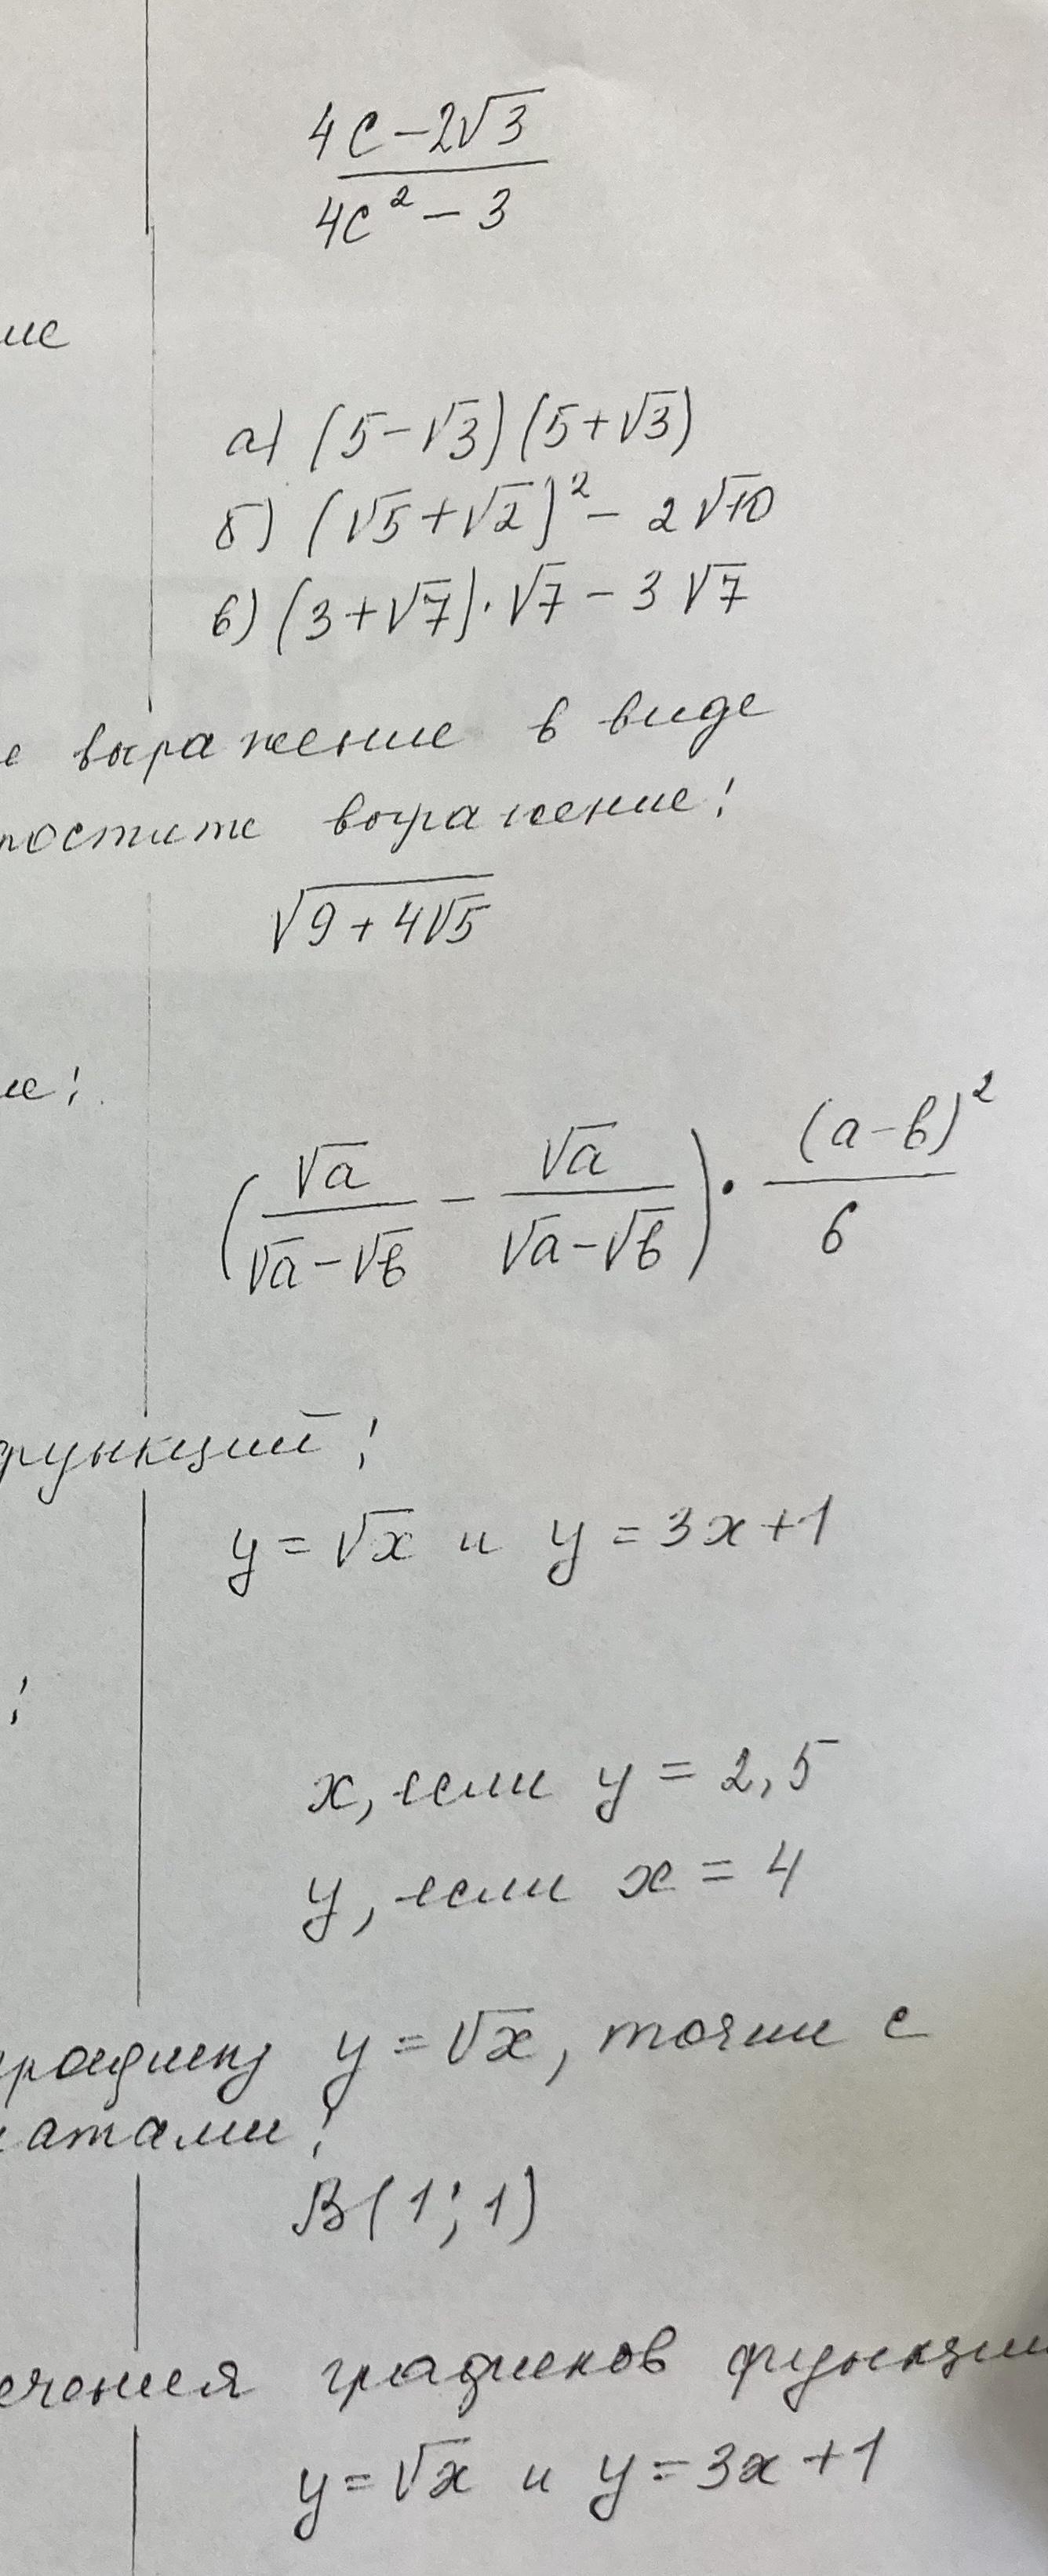 4c - 2√3
4c² - 3
ие
а) (5-√3)(5+√3)
б) (√5+√2)² - 2√10
в) (3+√7)·√7 - 3√7
е выражение в виде
постите выражение:
√(9+4√5)
ие:
(√a/(√a-√b) - √a/(√a-√b)) · (a-b)²/6
функций:
y = √x и y = 3x+1
:
x, если y = 2,5
y, если x = 4
графику y = √x, точки с
атами:
B(1; 1)
ечения графиков функции
y = √x и y = 3x+1